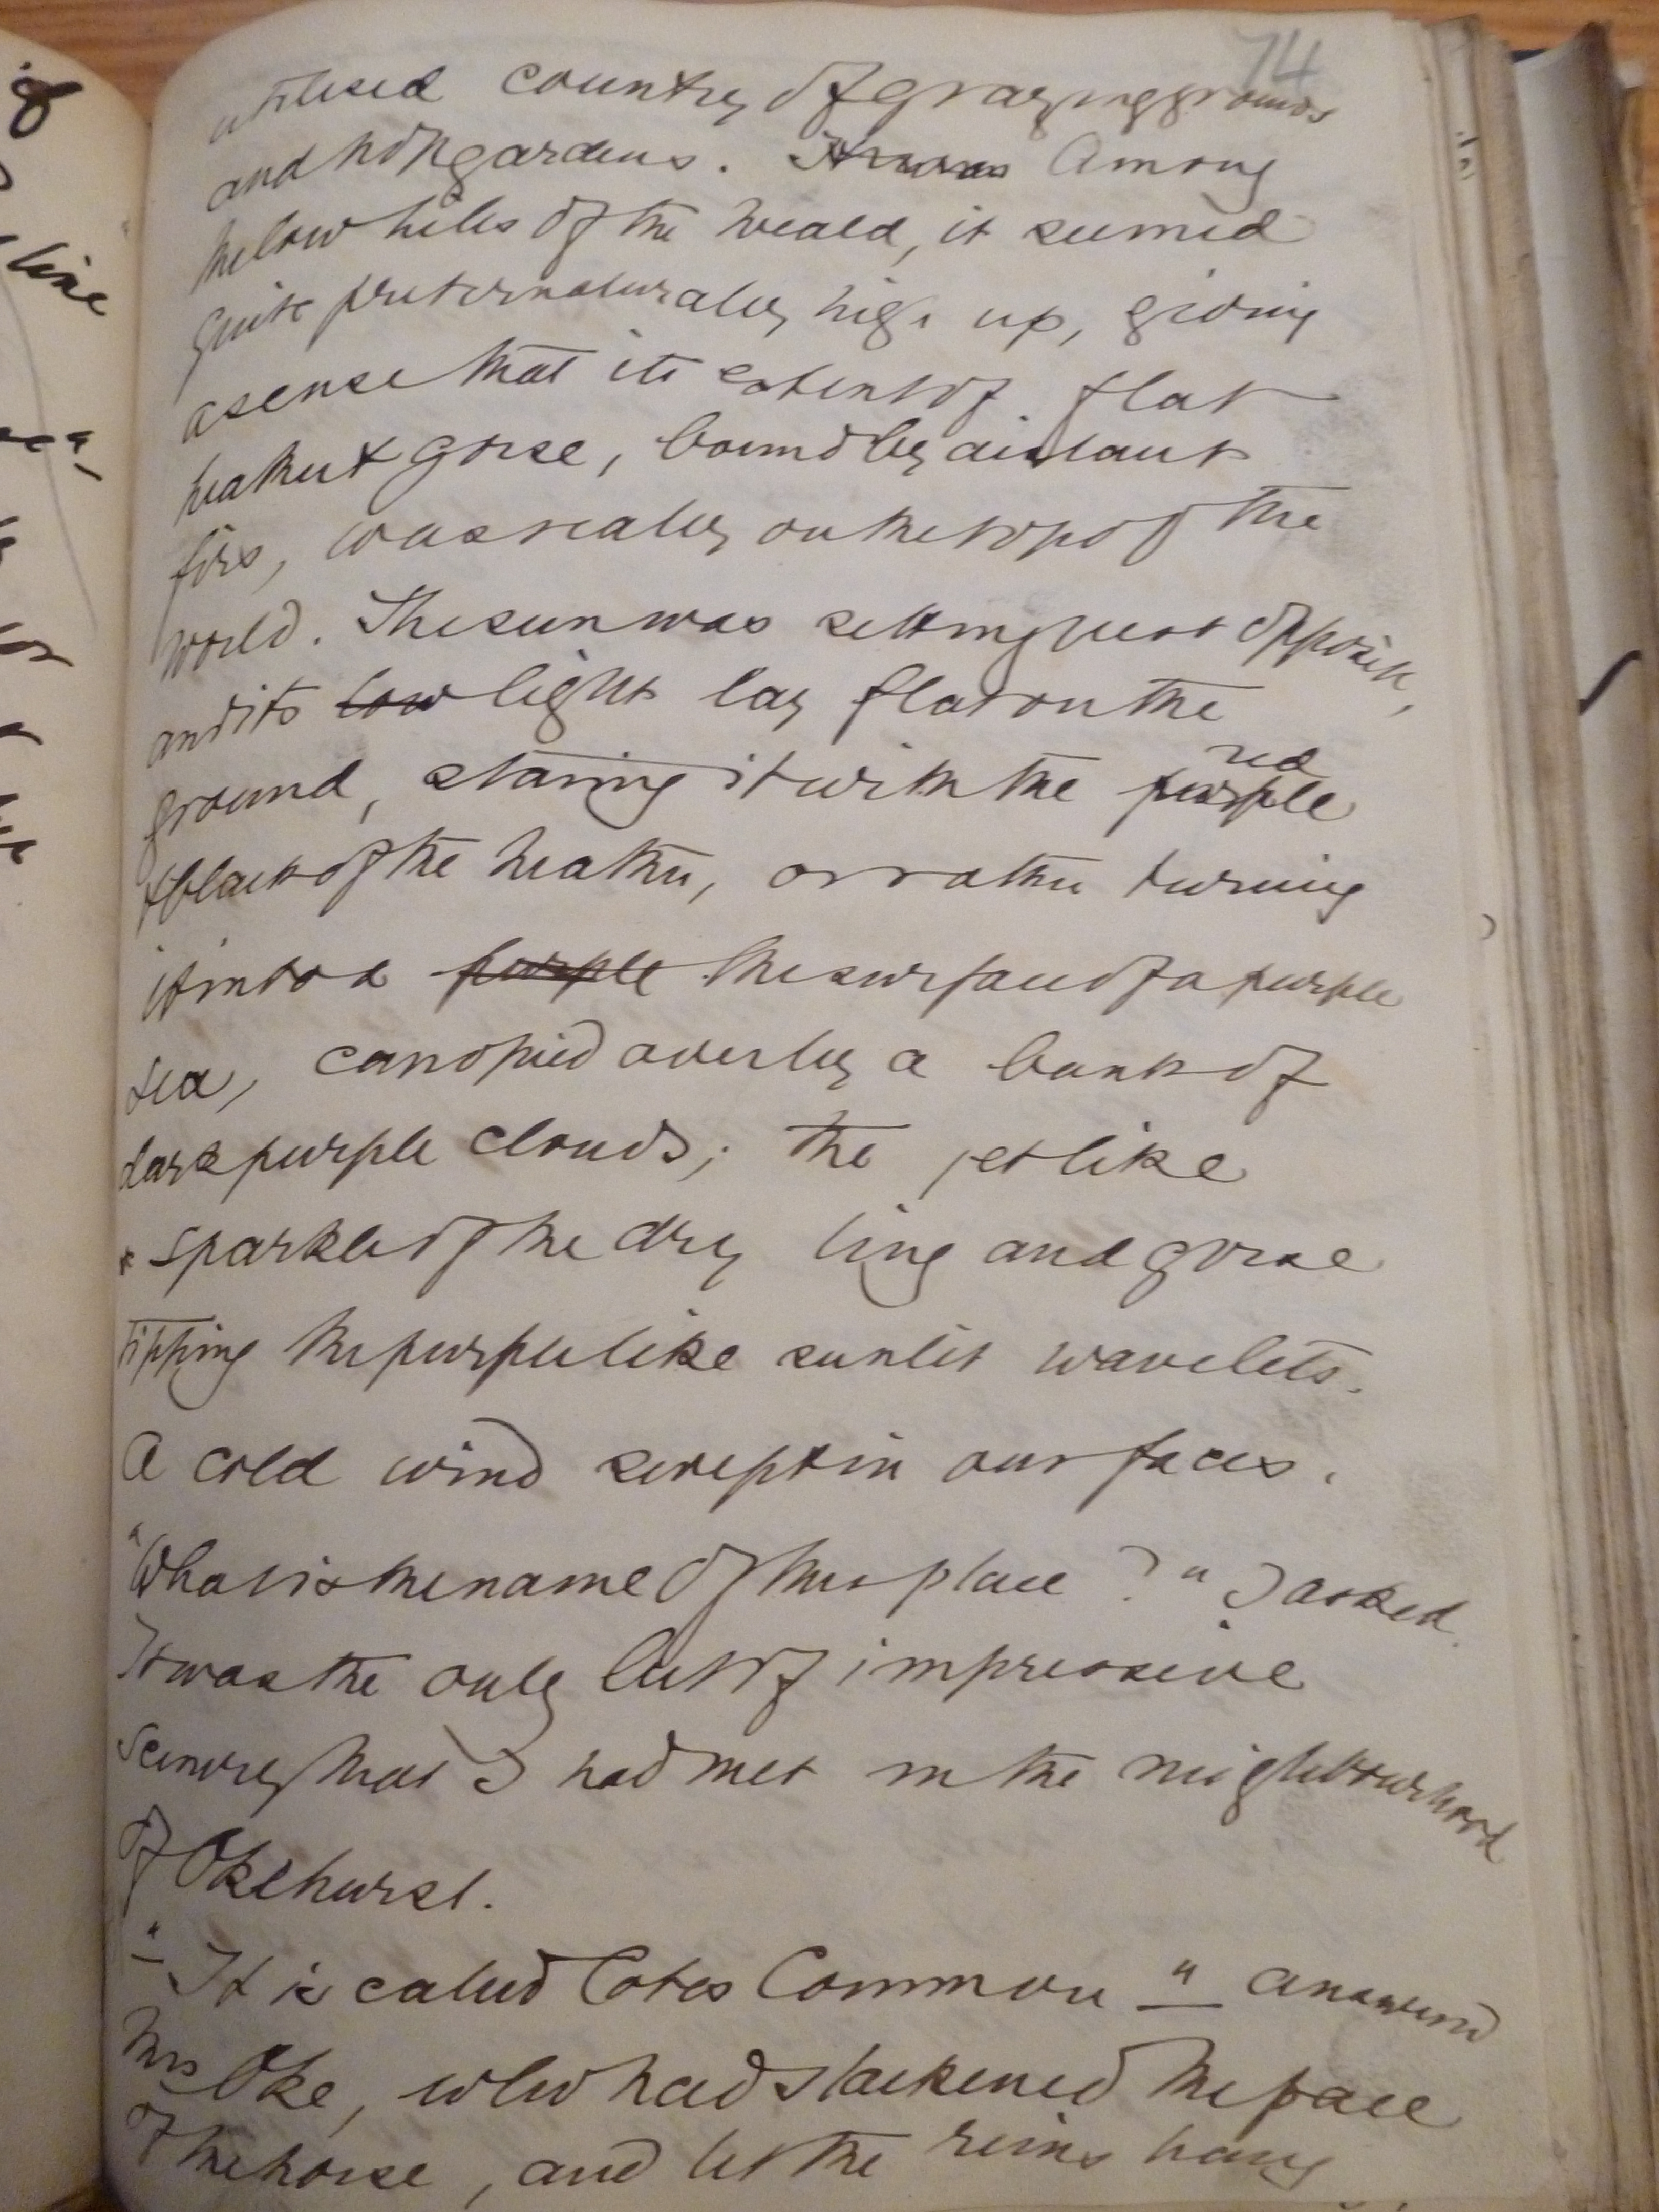 74
utilised country of grazing grounds
and hop gardens. It was Among
the low hills of the Weald, it seemed
quite preternaturally high up, giving
a sense that its extent of flat
heather & gorse, bound by distant
firs, was really on the top of the
world. The sun was setting just opposite,
and its low lights lay flat on the
ground, staining it with the purple red
& black of the heather, or rather turning
it into a purple the surface of a purple
sea, canopied over by a bank of
dark purple clouds; the jet like
sparkle of the dry ling and gorse
tipping the purple like sunlit wavelets.
A cold wind swept in our faces.
"What is the name of this place?" I asked.
It was the only bit of impressive
scenery that I had met in the neighbourhood
of Okehurst.
"It is called Cotes Common" answered
Mrs Oke, who had slackened the pace
of the horse, and let the reins hang